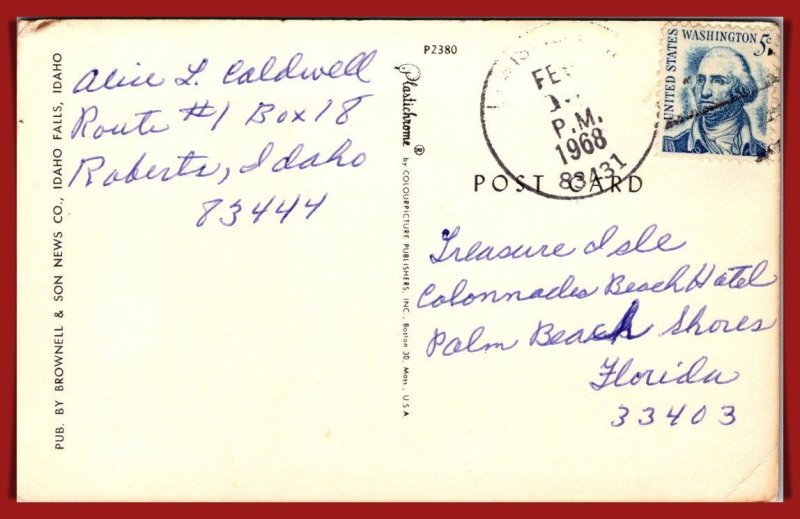 Alice L. Caldwell
Route #1 Box 18
Roberts, Idaho
83444
PUB. BY BROWNELL & SON NEWS CO., IDAHO FALLS, IDAHO
P2380
Plastichrome ® by COLOURPICTURE PUBLISHERS, INC. Boston 30, Mass., U.S.A
FE
P.M.
1968
83431
UNITED STATES
WASHINGTON 5c
POST CARD
Treasure Isle
Colonnades Beach Hotel
Palm Beach Shores
Florida
33403